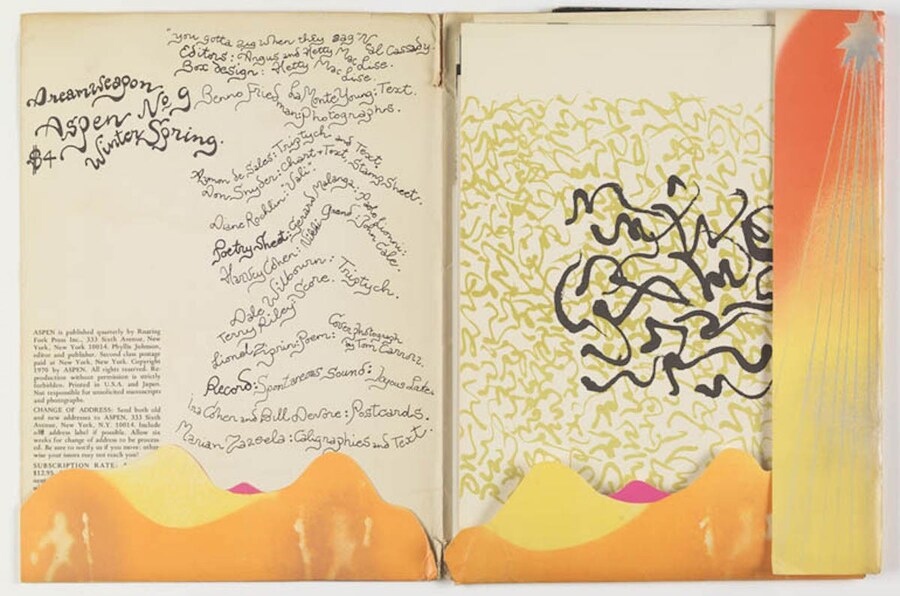 Dreamweapon
Aspen No. 9
$4 Winter Spring.
"you gotta zig when they zag" N
al Cassady.
Editors: Angus and Hetty Mac Lise.
Box design: Hetty Mac Lise.
Benno Fried, LaMonteYoung: Text.
man: Photographs.
Aymon de Sales: Triptych and Text.
Don Snyder: Chart + Text, Stamp Sheet.
Diane Rochlin: "Vali"
Poetry Sheet: Gerard Malanga:
Harvey Cohen: Vikki Grand: John Cale.
Dale Wilbourn: Triptych.
Terry Riley Score.
Lionel Ziprin: Poem: Cover Photograph
by Tom Carroll.
Record: Spontaneous Sound:
Ira Cohen and Bill Devore: Postcards.
Marian Zazeela: Caligraphies and Text.
ASPEN is published quarterly by Roaring
Fork Press Inc., 333 Sixth Avenue, New
York, New York 10014. Phyllis Johnson,
editor and publisher. Second class postage
paid at New York, New York. Copyright
1970 by ASPEN. All rights reserved. Re-
production without permission is strictly
forbidden. Printed in U.S.A. and Japan.
Not responsible for unsolicited manuscripts
and photographs.
CHANGE OF ADDRESS: Send both old
and new addresses to ASPEN, 333 Sixth
Avenue, New York, N.Y. 10014. Include
old address label if possible. Allow six
weeks for change of address to be proces-
ed. Be sure to notify us if you move: other-
wise your issues may not reach you!
SUBSCRIPTION RATE:
$12.95